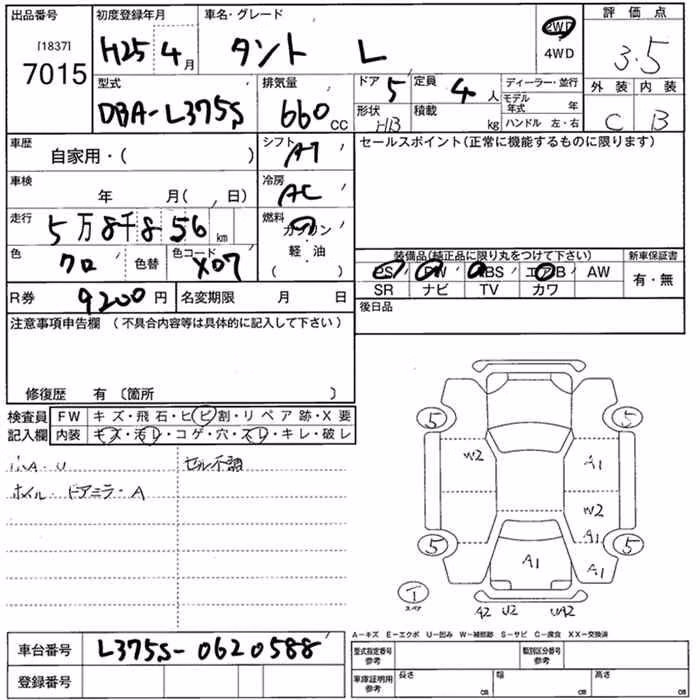 出品番号 初度登録年月 車名・グレード 2WD 評価点
[1837] H25 4月 タント L 4WD 3.5
7015
型式 排気量 ドア 5 定員 4人 ディーラー・並行 外装 内装
DBA-L375S 660cc 形状 HB 積載 kg モデル年式 年 C B
ハンドル 左・右
車歴 自家用・( ) シフト AT セールスポイント(正常に機能するものに限ります)
車検 年 月( 、日) 冷房 AC
走行 5万8千856km 燃料 ガソリン
軽・油
( )
色 クロ 色替 色コード X07 装備品(純正品に限り丸をつけて下さい) 新車保証書
PS PW ABS エアB AW 有・無
R券 9200円 名変期限 月 日 SR ナビ TV カワ
後日品
注意事項申告欄 (不具合内容等は具体的に記入して下さい)
修復歴 有 〔箇所 〕
検査員 FW キズ・飛石・ヒビ割・リペア跡・X要
記入欄 内装 キズ・汚レ・コゲ・穴・スレ・キレ・破レ
小A・U セル不調
ホイル・ドアミラ・A
5 5
W2 A1
W2
A1
5 5
A1 A1
1
スペア
A2 U2 UA2
A-キズ E-エクボ U-凹み W-補修跡 S-サビ C-腐食 XX-交換済
車台番号 L375S-0620588 型式指定番号 参考 類別区分番号 参考
登録番号 車庫証明用 参考 長さ cm 幅 cm 高さ cm